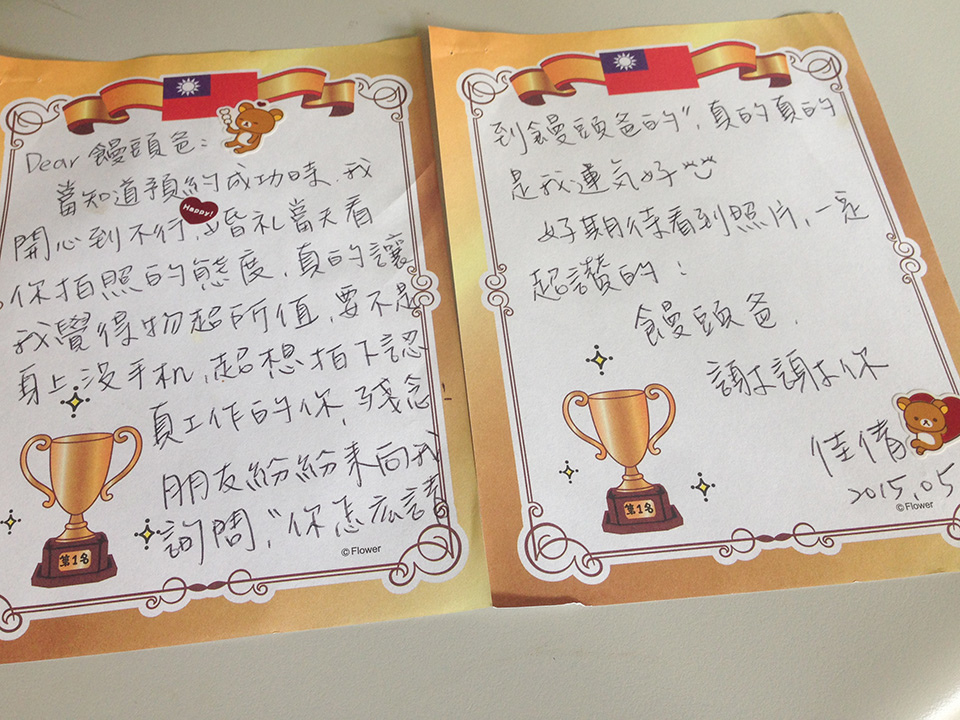 Dear 饅頭爸：
當知道預約成功時,我
開心到不行,婚礼當天看
Happy!
你拍照的態度,真的讓
我覺得物超所值,要不是
身上沒手机,超想拍下認
真工作的你,殘念
朋友紛紛來向我
詢問,"你怎麼請
第1名
©Flower
到饅頭爸的",真的真的
是我運気好
好期待看到照片,一定
超讚的!
饅頭爸,
謝謝你
佳倩
2015.05
第1名
©Flower